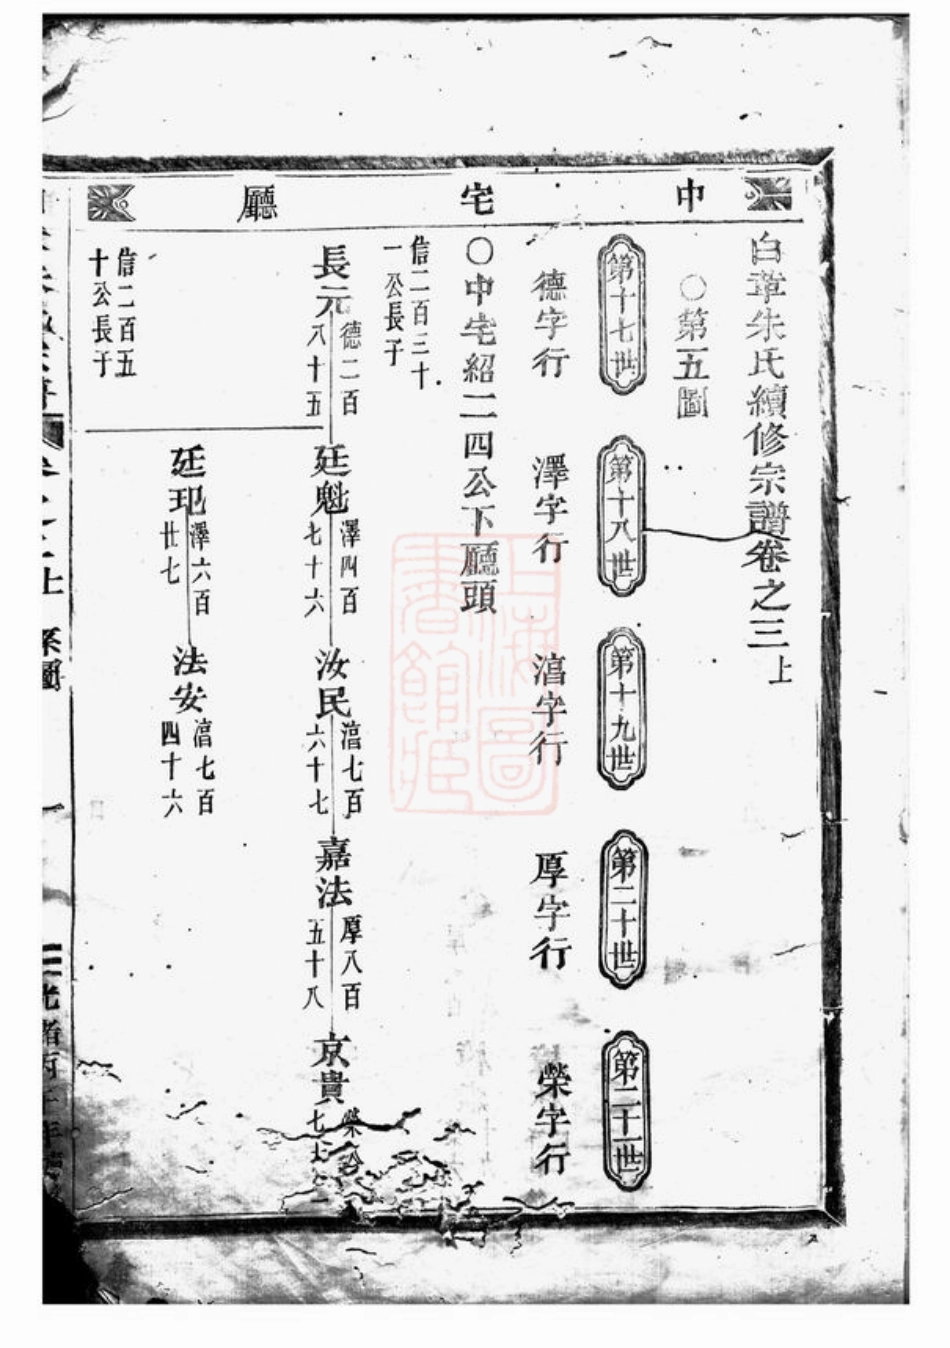 中宅廳
白章朱氏續修宗譜卷之三上
○第五圖
第十七世
德字行
第十八世
澤字行
第十九世
湻字行
第二十世
厚字行
第二十一世
榮字行
○中宅紹二四公下廳頭
信二百三十
一公長子
長元
德二百
八十五
廷魁
澤四百
七十六
汝民
湻七百
六十七
嘉法
厚八百
五十八
京貴
信二百五
十公長子
廷玘
澤六百
廿七
法安
湻七百
四十六
卷之三上 系圖
上海圖書館藏